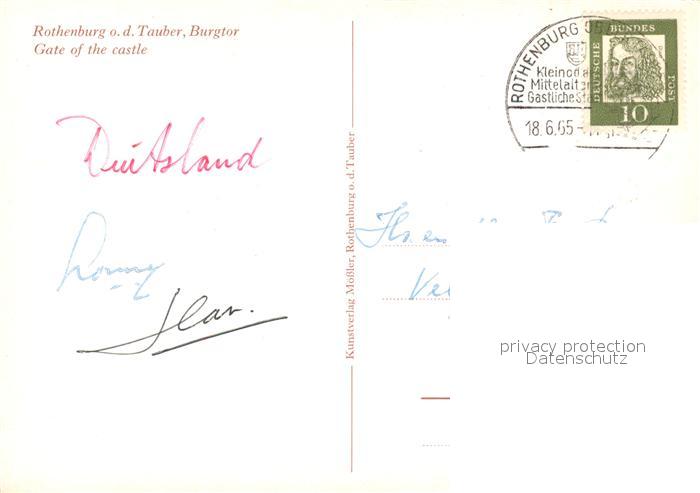 Rothenburg o. d. Tauber, Burgtor
Gate of the castle
Deutsland
Kunstverlag Moßler, Rothenburg o. d. Tauber
ROTHENBURG
Kleinod
Mittelalter
Gastliche
18.6.65
DEUTSCHE
BUNDES
POST
10
privacy protection
Datenschutz